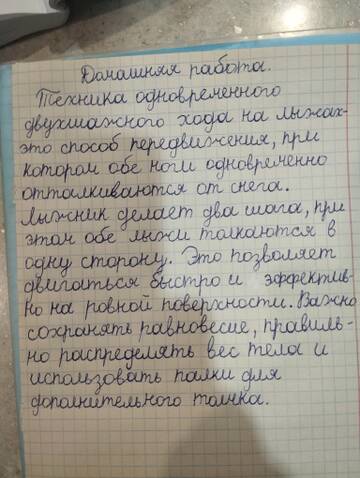 Домашняя работа.
Техника одновременного
двухшажного хода на лыжах-
это способ передвижения, при
котором обе ноги одновременно
отталкиваются от снега.
Лыжник делает два шага, при
этом обе лыжи толкаются в
одну сторону. Это позволяет
двигаться быстро и эффектив-
но на ровной поверхности. Важно
сохранять равновесие, правиль-
но распределять вес тела и
использовать палки для
дополнительного толчка.